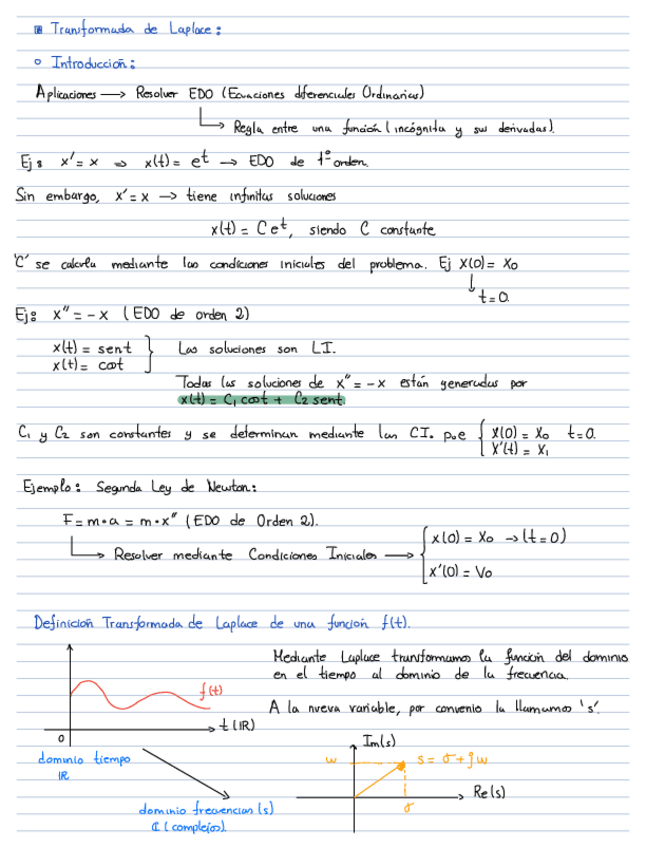 Transformada de Laplace:
Introducción:
Aplicaciones → Resolver EDO (Ecuaciones diferenciales Ordinarias)
Regla entre una función (incógnita y sus derivadas).
Ej: x' = x ⇒ x(t) = e^t → EDO de 1º orden.
Sin embargo, x' = x → tiene infinitas soluciones
x(t) = C e^t, siendo C constante
'C' se calcula mediante las condiciones iniciales del problema. Ej X(0) = X₀
t=0.
Ej: x'' = -x (EDO de orden 2)
x(t) = sent } Las soluciones son LI.
x(t) = cost
Todas las soluciones de x'' = -x están generadas por
x(t) = C₁ cost + C₂ sent.
C₁ y C₂ son constantes y se determinan mediante las CI. p.e { X(0) = X₀ t=0.
X'(t) = X₁
Ejemplo: Segunda Ley de Newton:
F = m·a = m·x'' (EDO de Orden 2).
Resolver mediante Condiciones Iniciales → { x(0) = X₀ → (t=0)
x'(0) = V₀
Definición Transformada de Laplace de una función f(t).
Mediante Laplace transformamos la función del dominio
en el tiempo al dominio de la frecuencia.
f(t)
A la nueva variable, por convenio la llamamos 's'.
t (IR)
0
Im(s)
dominio tiempo
IR
w
s = σ + jw
Re(s)
σ
dominio frecuencias (s)
ℂ (complejos).